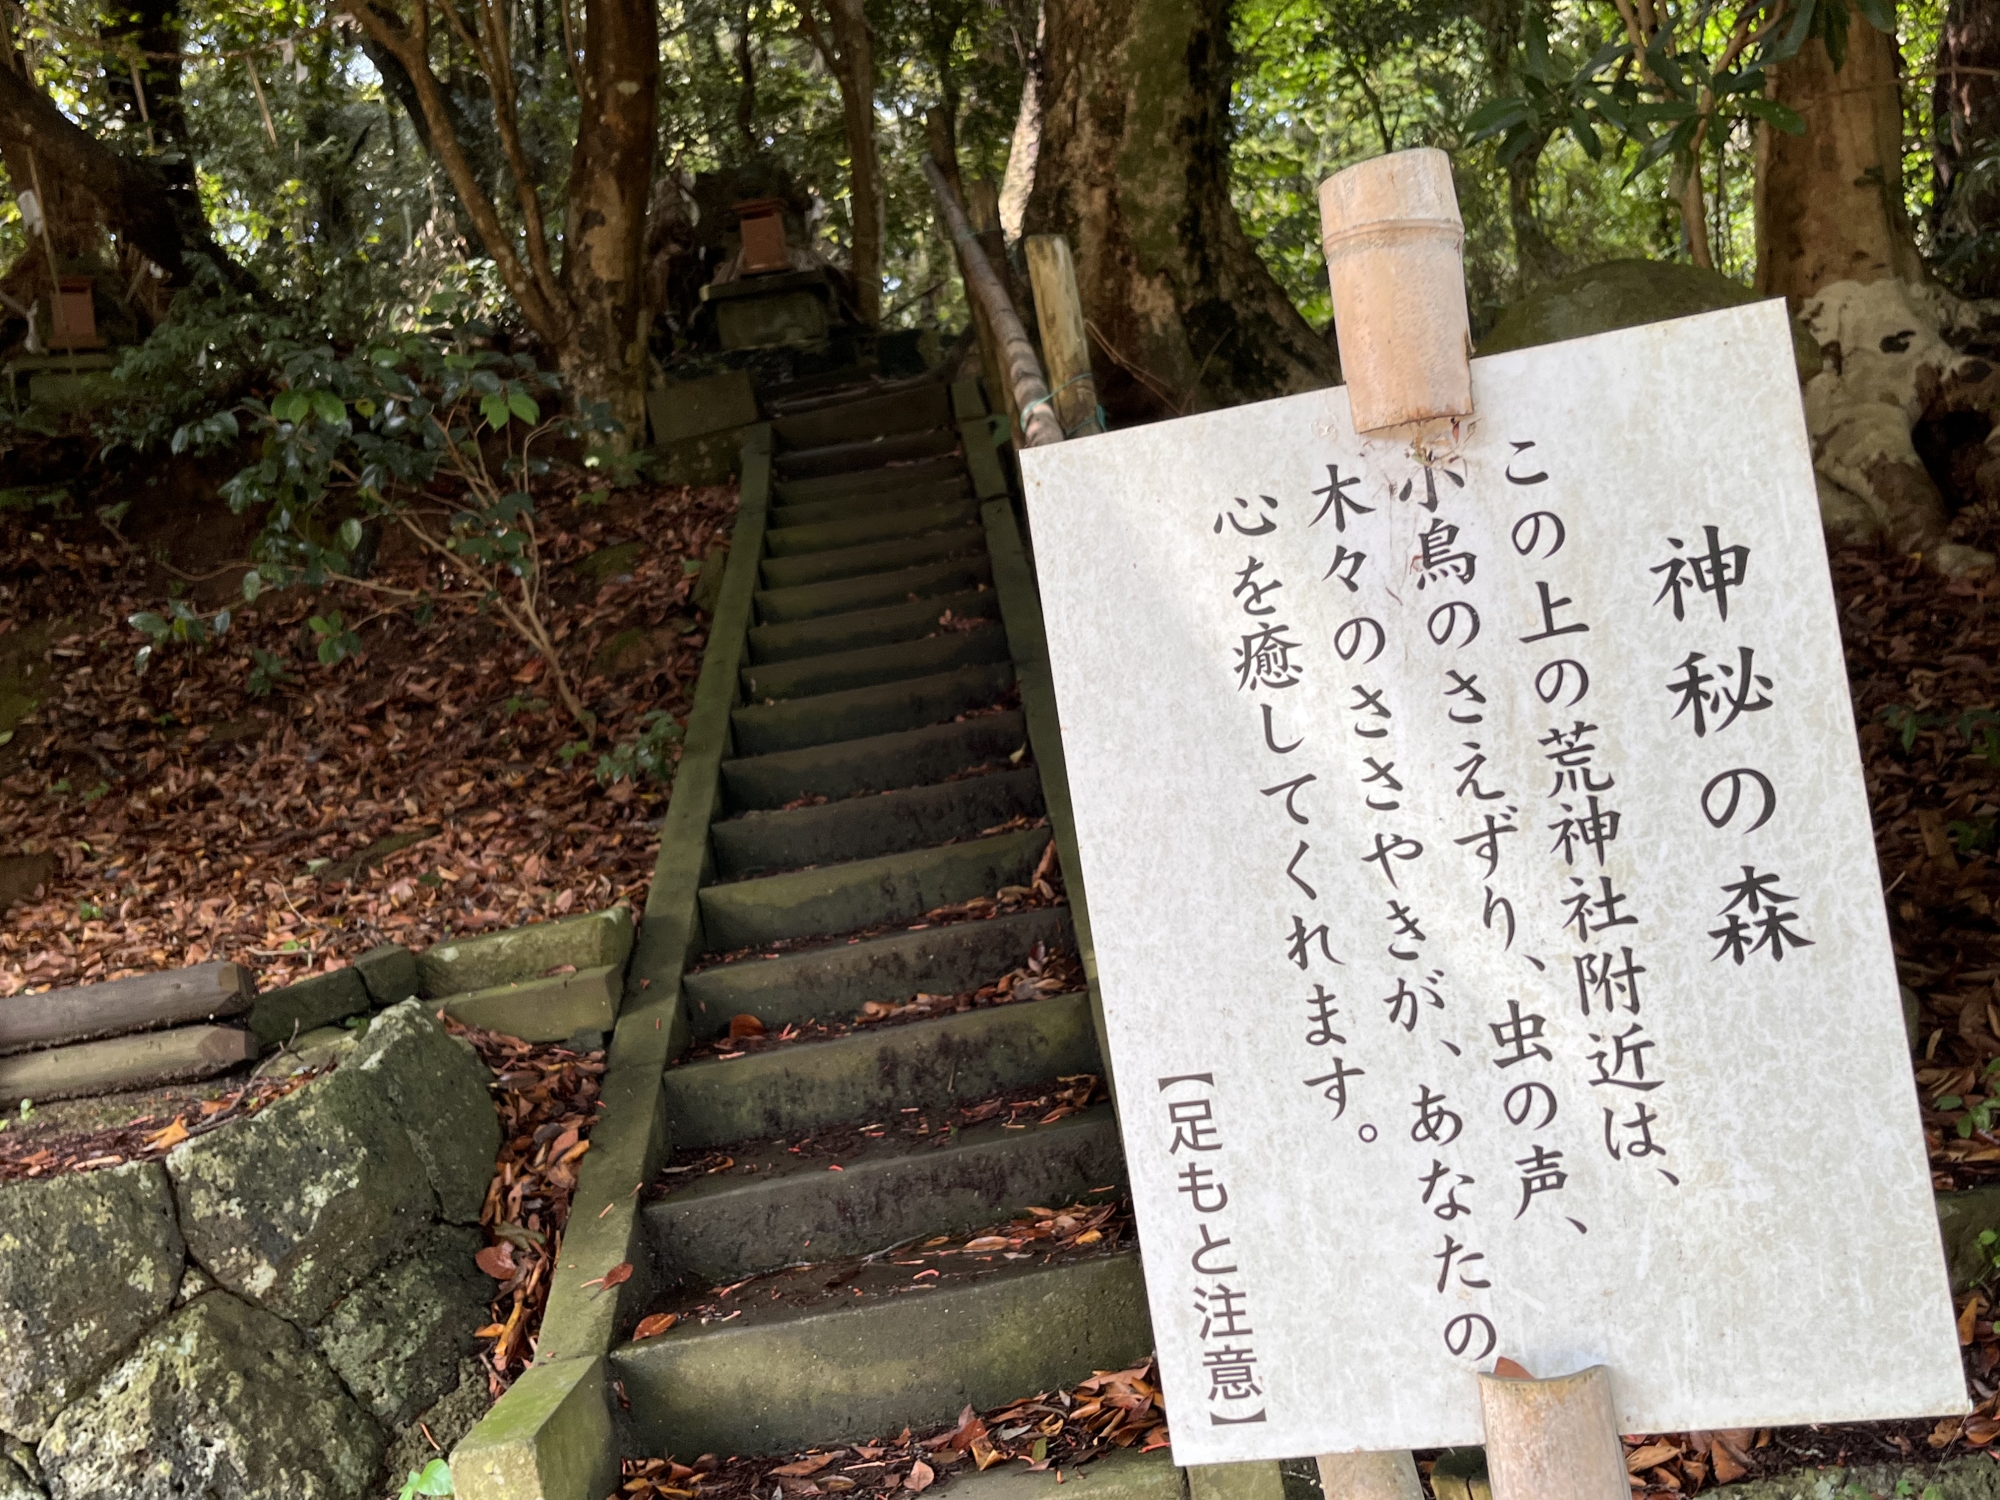 神秘の森
この上の荒神社附近は、
小鳥のさえずり、虫の声、
木々のささやきが、あなたの
心を癒してくれます。
【足もと注意】